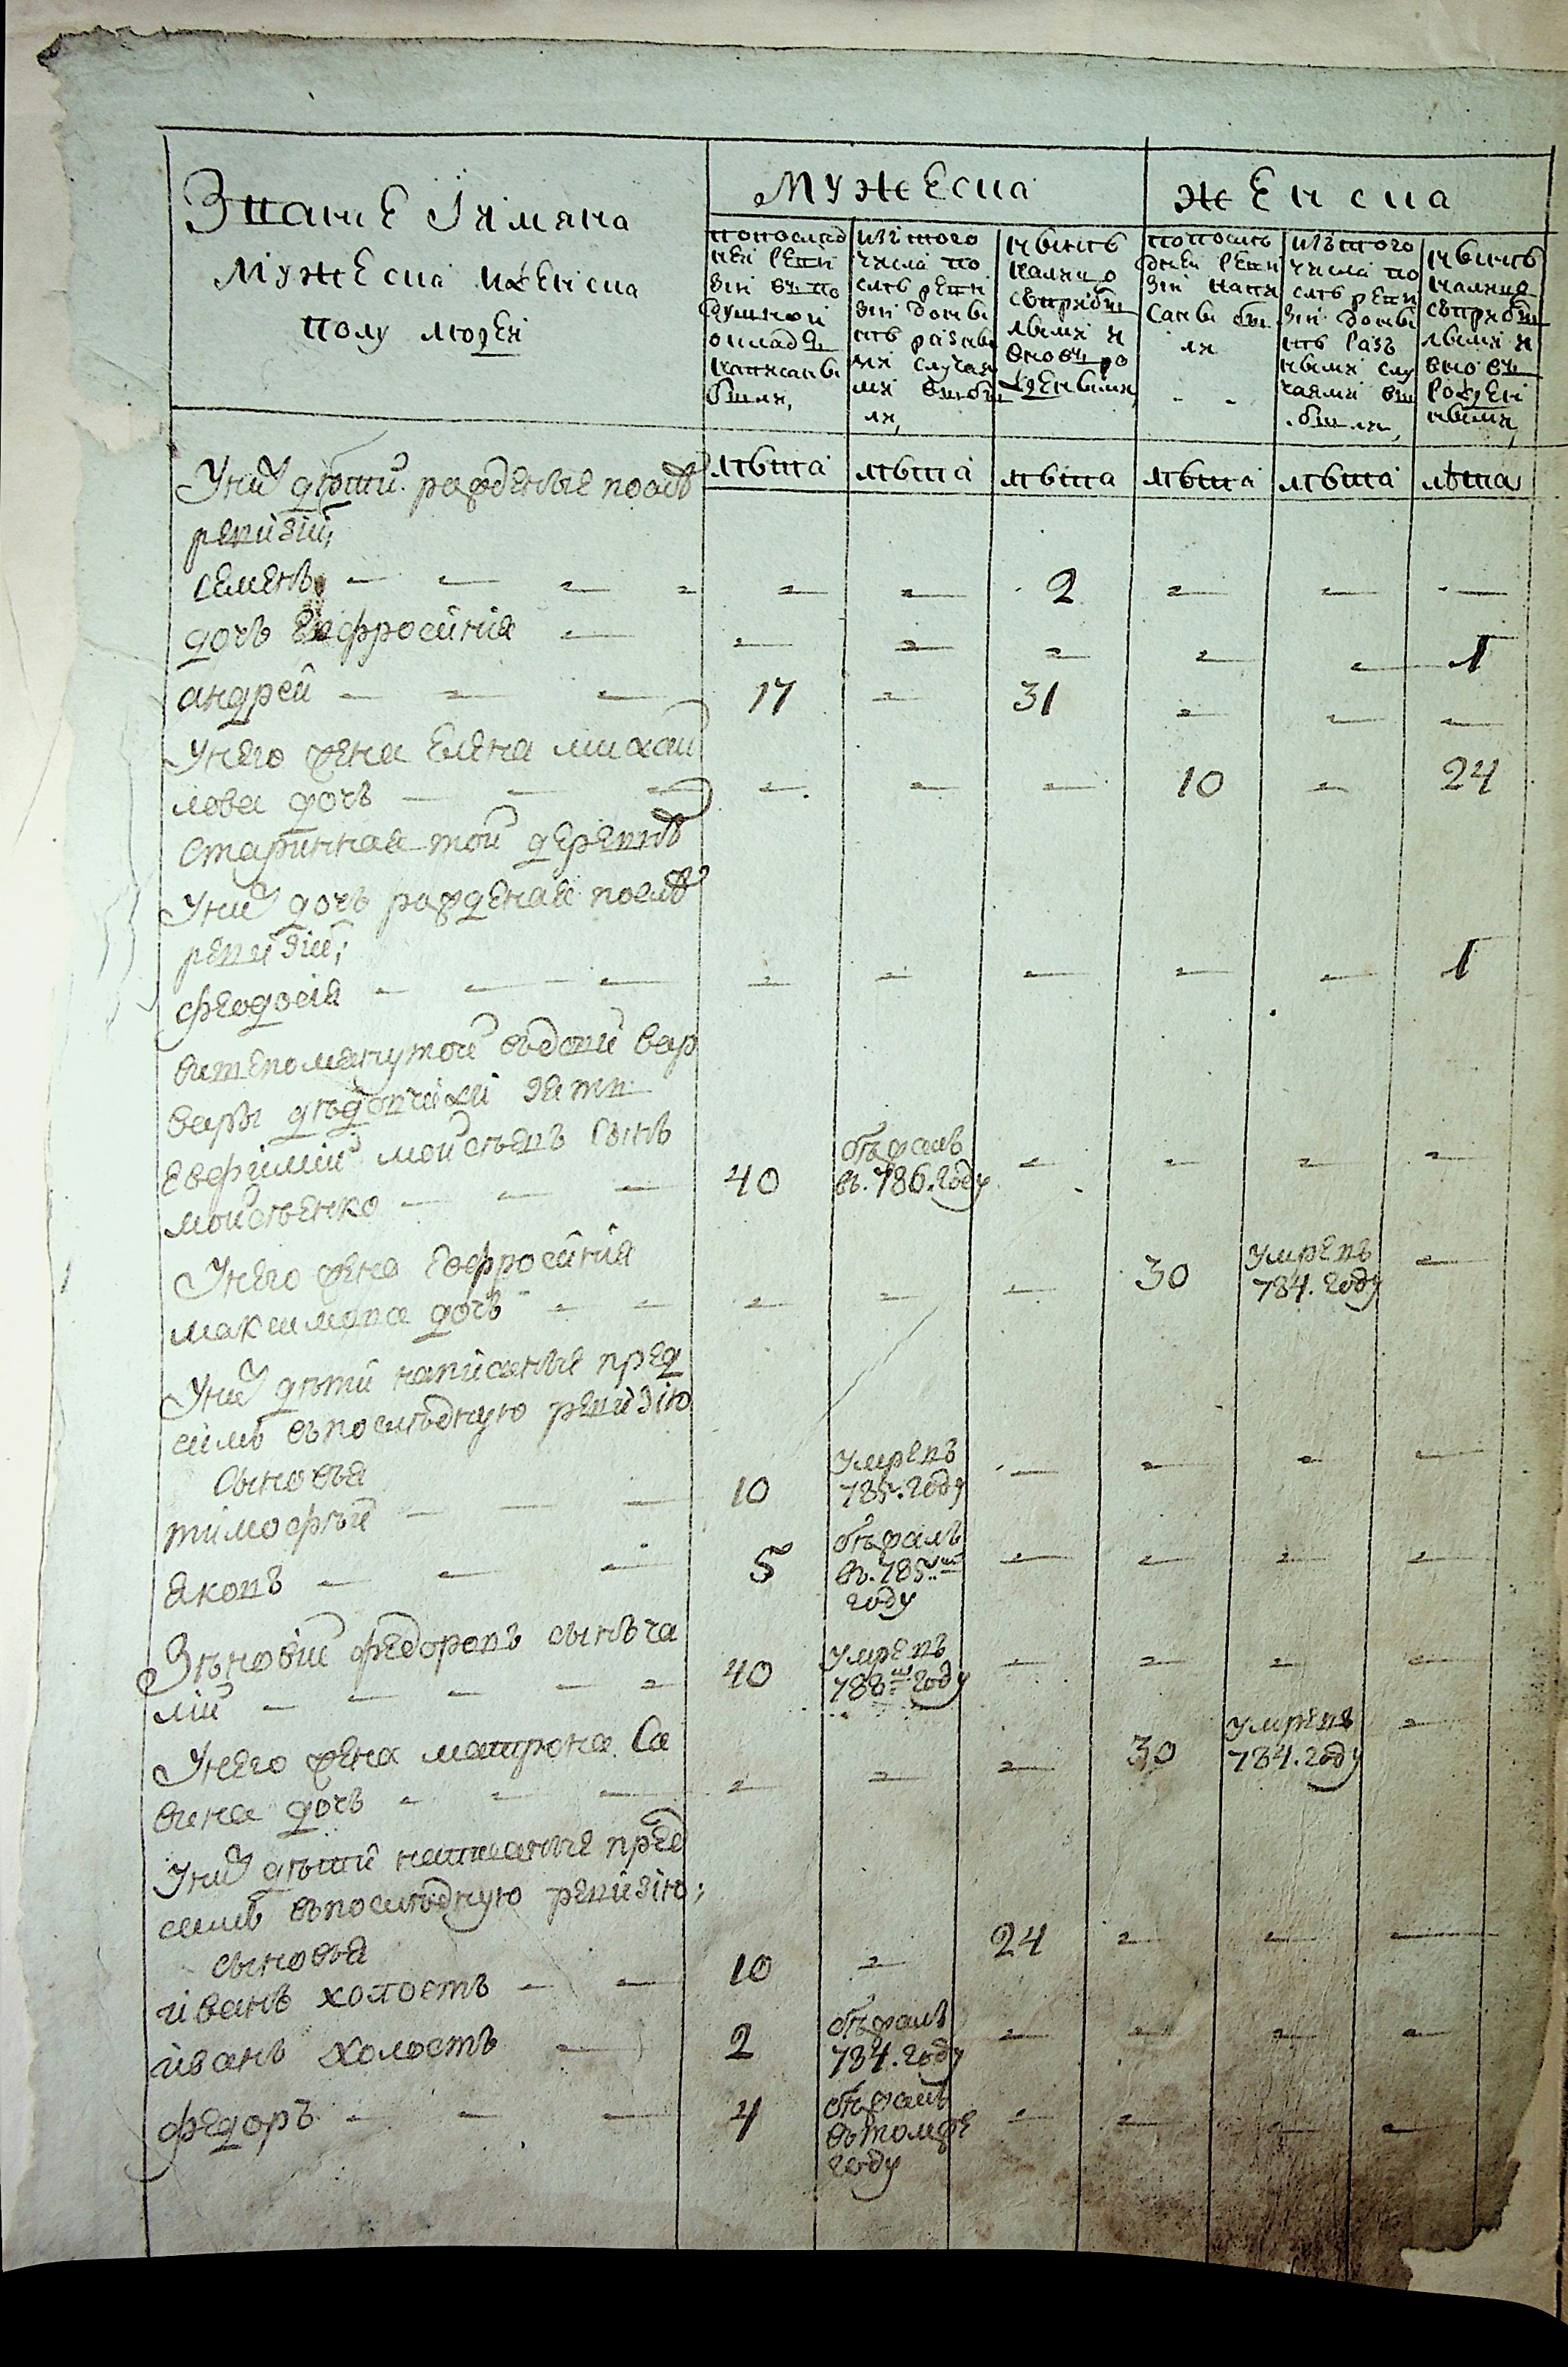 Звание Iимяна
Мужеска иженска
полу людей
Мужеска
женска
попослед
ней реви
зии въпо
душной
окладъ
написаны
были,
изътого
числа по
слѣ реви
зии довы
нѣ разны
ми случая
ми выбы
ли,
нынѣ
налицо
съприбы
лыми и
вновь ро
жденными,
попослѣ
дней реви
зии напи
саны бы
ли
изътого
числа по
слѣ реви
зии довы
нѣ разъ
ными слу
чаями вы
были,
нынѣ
налицо
съприбы
лыми и
вновь
рожден
ными,
Уних дѣти рожденые послѣ
лѣта лѣта лѣта лѣта лѣта лѣта
ревизии;
семенъ 2
дочь Евфросинïя 1
андрей 17 31
Унего жена Елена михаи
лова дочь 10 24
Старинная той деревнѣ
Уних дочь рожденая послѣ
ревизии;
феодосïя 1
вышепомянутой вдовы вар
вары дѣдовчихи зять
Евфимïй мойсѣевъ сынъ
мойсѣенко 40 бѣжалъ
въ.786.году
Унего жена Евфросинïя
максимова дочь 30 умре въ
784.году
Уних дѣти написаные пред
симъ въпослѣдную ревизïю
сыновья
тимофѣй 10 умре въ
785.году
яковъ 5 бѣжалъ
въ.785.м
году
Зѣновïй федоровъ сынъ ча
лïй 40 умре въ
788м году
Унего жена матрона Са
вина дочь 30 умре въ
784.году
Уних дѣти написаные пред
симъ въпослѣдную ревизïю;
сыновья
иванъ холостъ 10 24
иванъ холостъ 2 бѣжалъ
784.году
федоръ 4 бѣжалъ
въ томже
году